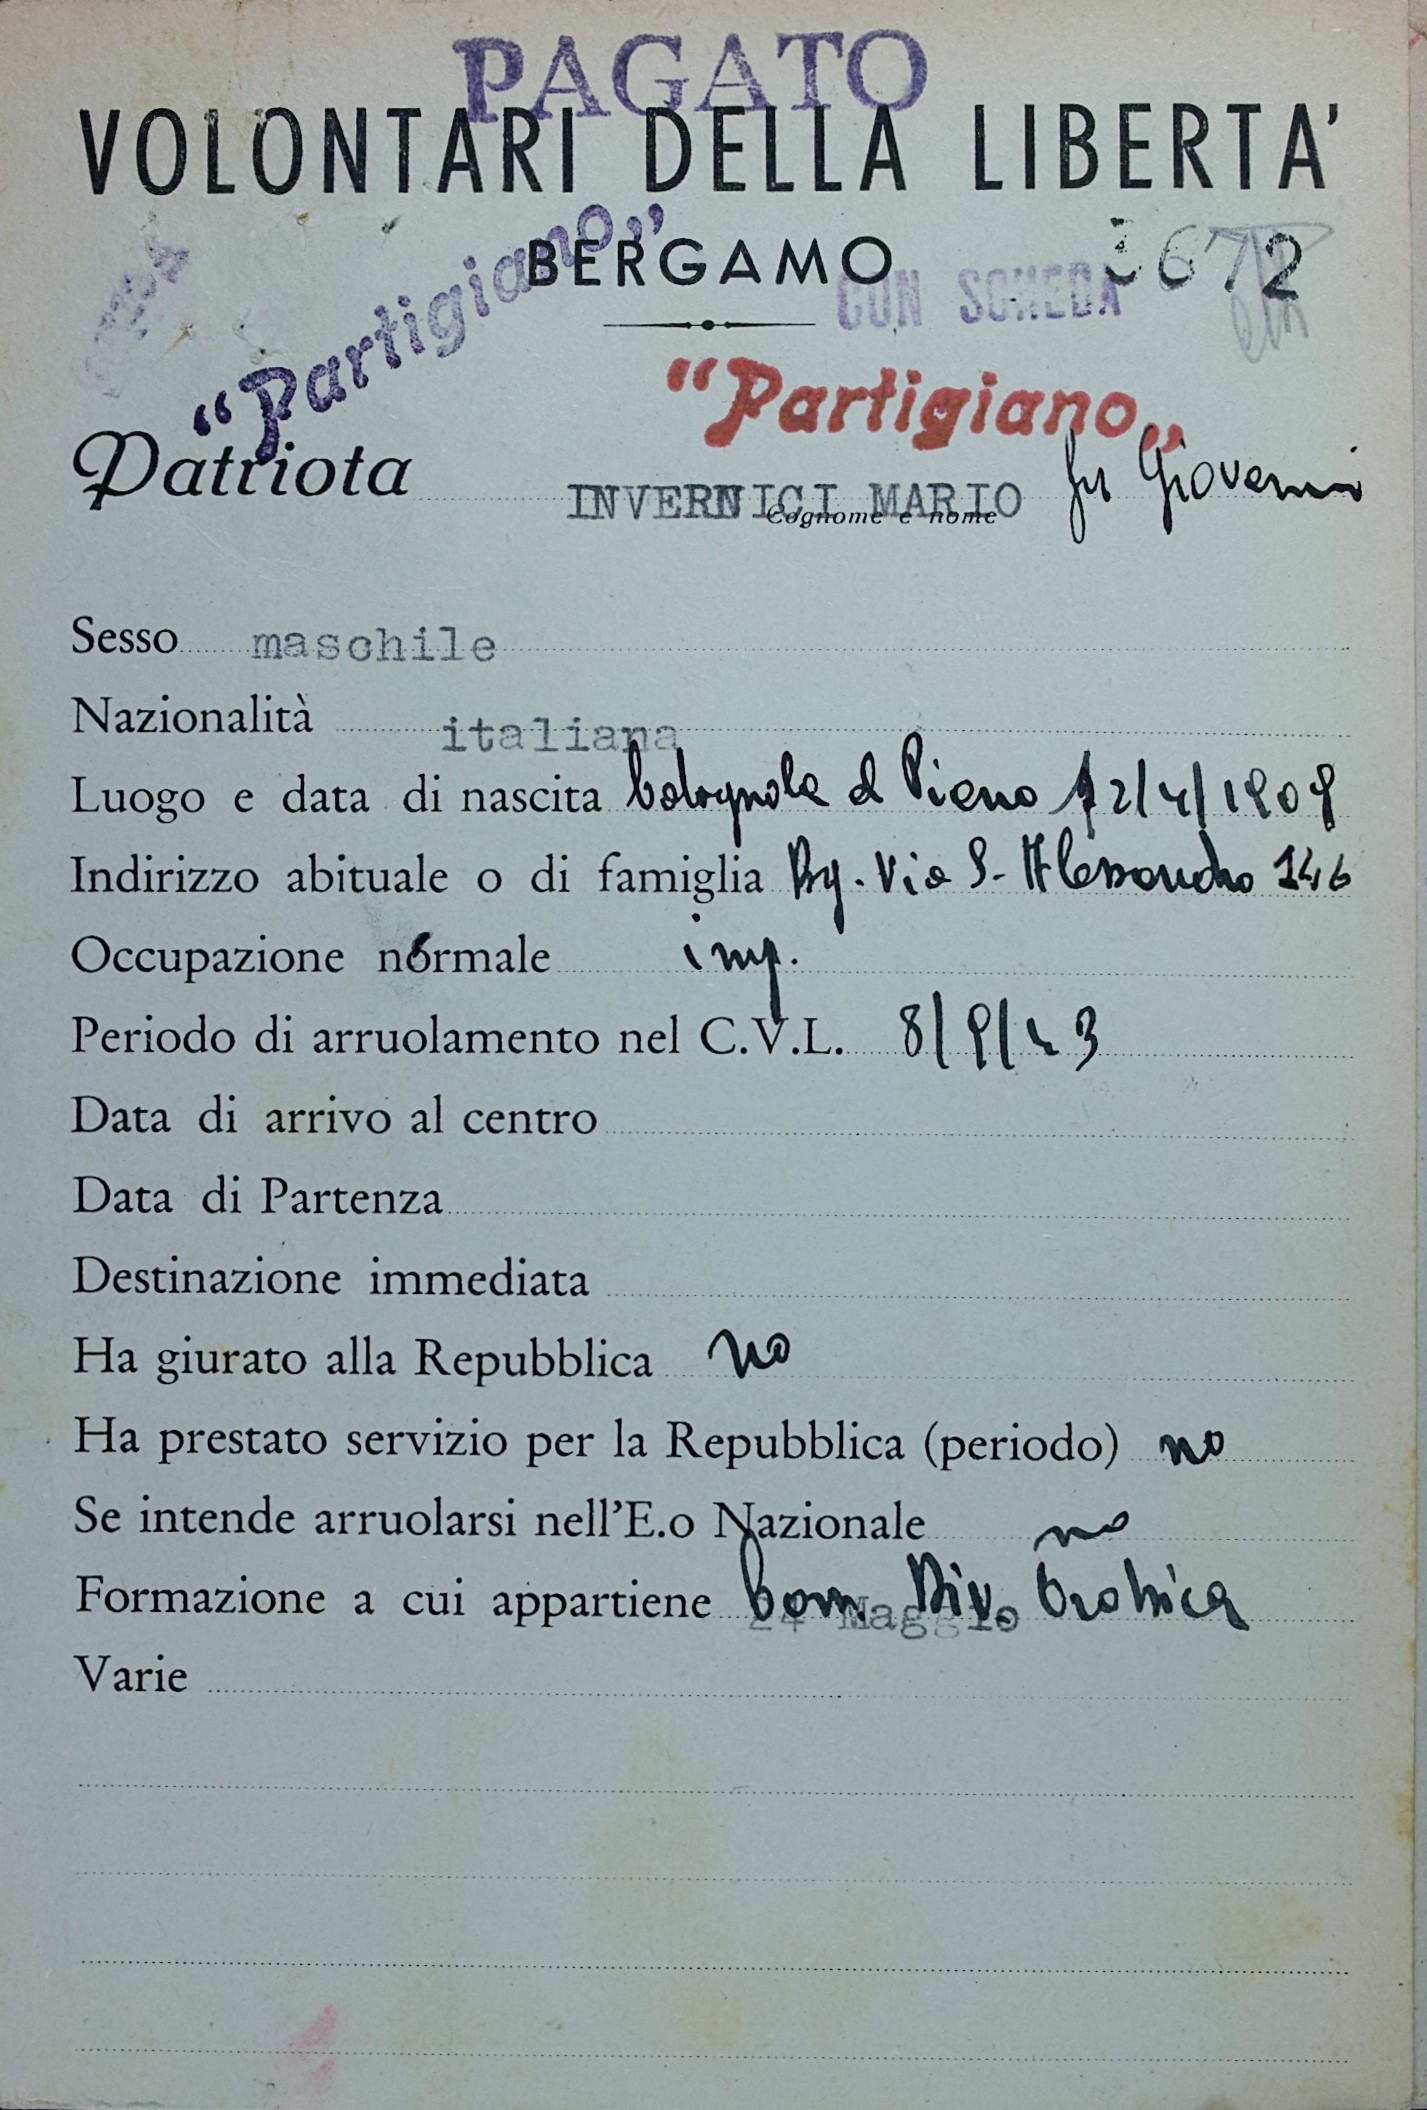 PAGATO
VOLONTARI DELLA LIBERTA'
BERGAMO
3672
CON SCHEDA
"Partigiano„
"Partigiano„
Patriota INVERNICI MARIO fu Giovanni
Cognome e nome
Sesso maschile
Nazionalità italiana
Luogo e data di nascita Colognola d Piano 12/4/1909
Indirizzo abituale o di famiglia Bg. Via S. Alessandro 146
Occupazione normale imp.
Periodo di arruolamento nel C.V.L. 8/9/43
Data di arrivo al centro
Data di Partenza
Destinazione immediata
Ha giurato alla Repubblica no
Ha prestato servizio per la Repubblica (periodo) no
Se intende arruolarsi nell'E.o Nazionale no
Formazione a cui appartiene Com Div. Orobica
24 Maggio
Varie